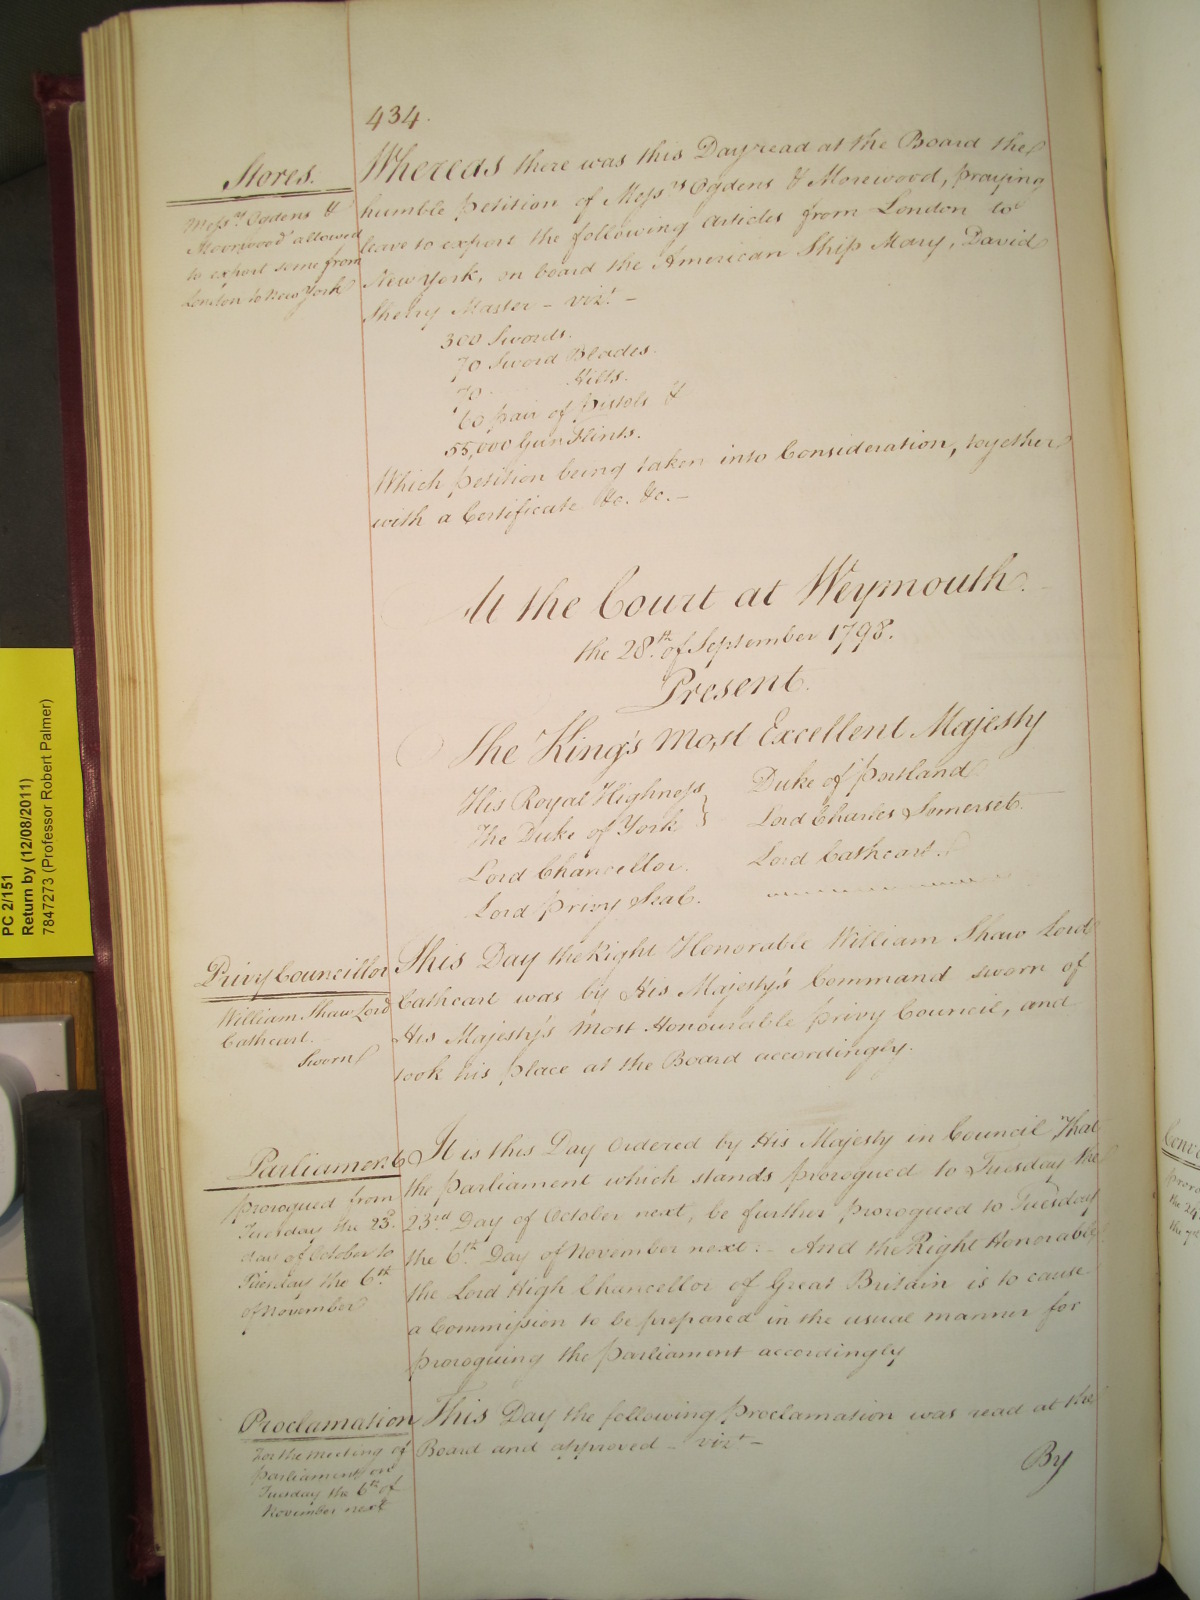 434.
Stores.
Mess.rs Ogdens &
Moorwood allowed
to export some from
London to New York
Whereas there was this Day read at the Board the
humble Petition of Mess.rs Ogdens & Morewood, praying
leave to export the following articles from London to
New York, on board the American Ship Mary, David
Sherry Master – viz.t –
300 Swords.
70 Sword Blades.
70. Hilts.
60 pair of Pistols &
55,000 Gun Flints.
Which Petition being taken into Consideration, together
with a Certificate &c. &c. –
At the Court at Weymouth.
the 28.th of September 1798.
Present.
The King's Most Excellent Majesty
His Royal Highness
The Duke of York
Lord Chancellor.
Lord Privy Seal.
Duke of Portland
Lord Charles Somerset.
Lord Cathcart.
Privy Councillor
William Shaw Lord
Cathcart.
Sworn
This Day the Right Honorable William Shaw Lord
Cathcart was by His Majesty's Command sworn of
His Majesty's Most Honourable Privy Council, and
took his Place at the Board accordingly.
Parliament
prorogued from
Tuesday the 23.d
day of October to
Tuesday the 6.th
of November
It is this Day Ordered by His Majesty in Council That
the Parliament which stands prorogued to Tuesday the
23.rd Day of October next, be further prorogued to Tuesday
the 6.th Day of November next: – And the Right Honorable
the Lord High Chancellor of Great Britain is to cause
a Commission to be prepared in the usual manner for
proroguing the Parliament accordingly
Proclamation
For the meeting of
Parliament on
Tuesday the 6.th of
November next
This Day the following Proclamation was read at the
Board and approved – viz.t –
By
PC 2/151
Return by (12/08/2011)
7847273 (Professor Robert Palmer)